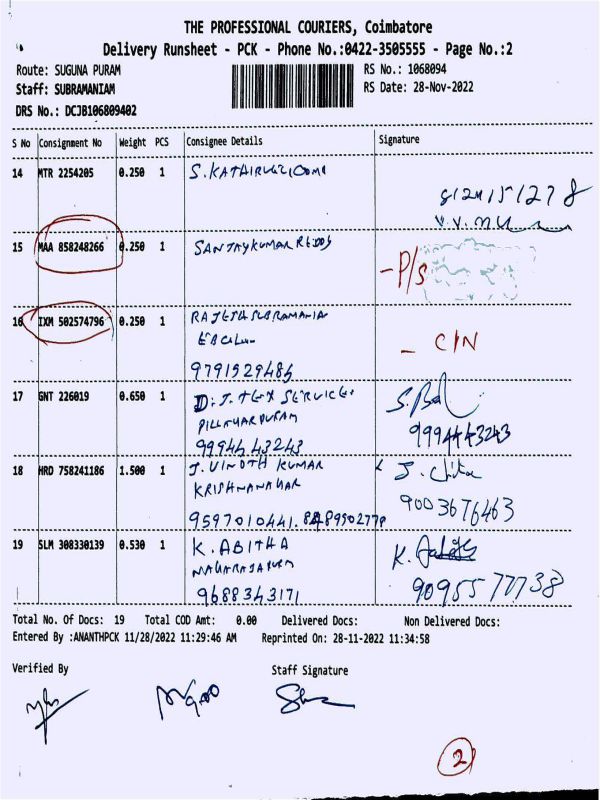 THE PROFESSIONAL COURIERS, Coimbatore
Delivery Runsheet - PCK - Phone No.:0422-3505555 - Page No.:2
Route: SUGUNA PURAM
RS No.: 1068094
Staff: SUBRAMANIAM
RS Date: 28-Nov-2022
DRS No.: DCJB106809402
S No Consignment No Weight PCS Consignee Details Signature
14 MTR 2254205 0.250 1
15 MAA 858248266 0.250 1 SANJAYKUMAR REDDY - P/S
16 IXM 502574796 0.250 1 RAJESH SUBRAMANIA
- C/N
9791529484
17 GNT 226019 0.650 1 D. J. TEX SERVICE.
PILLAIYARPURAM
9994443243 9994443243
18 HRD 758241186 1.500 1 J. VINOTH KUMAR
KRISHNANAGAR
9597010441. 9003676463
19 SLM 308330139 0.530 1 K. ABITHA
MAHARAJAPURM
9688343171 9095577738
Total No. Of Docs: 19 Total COD Amt: 0.00 Delivered Docs: Non Delivered Docs:
Entered By :ANANTHPCK 11/28/2022 11:29:46 AM Reprinted On: 28-11-2022 11:34:58
Verified By Staff Signature
2